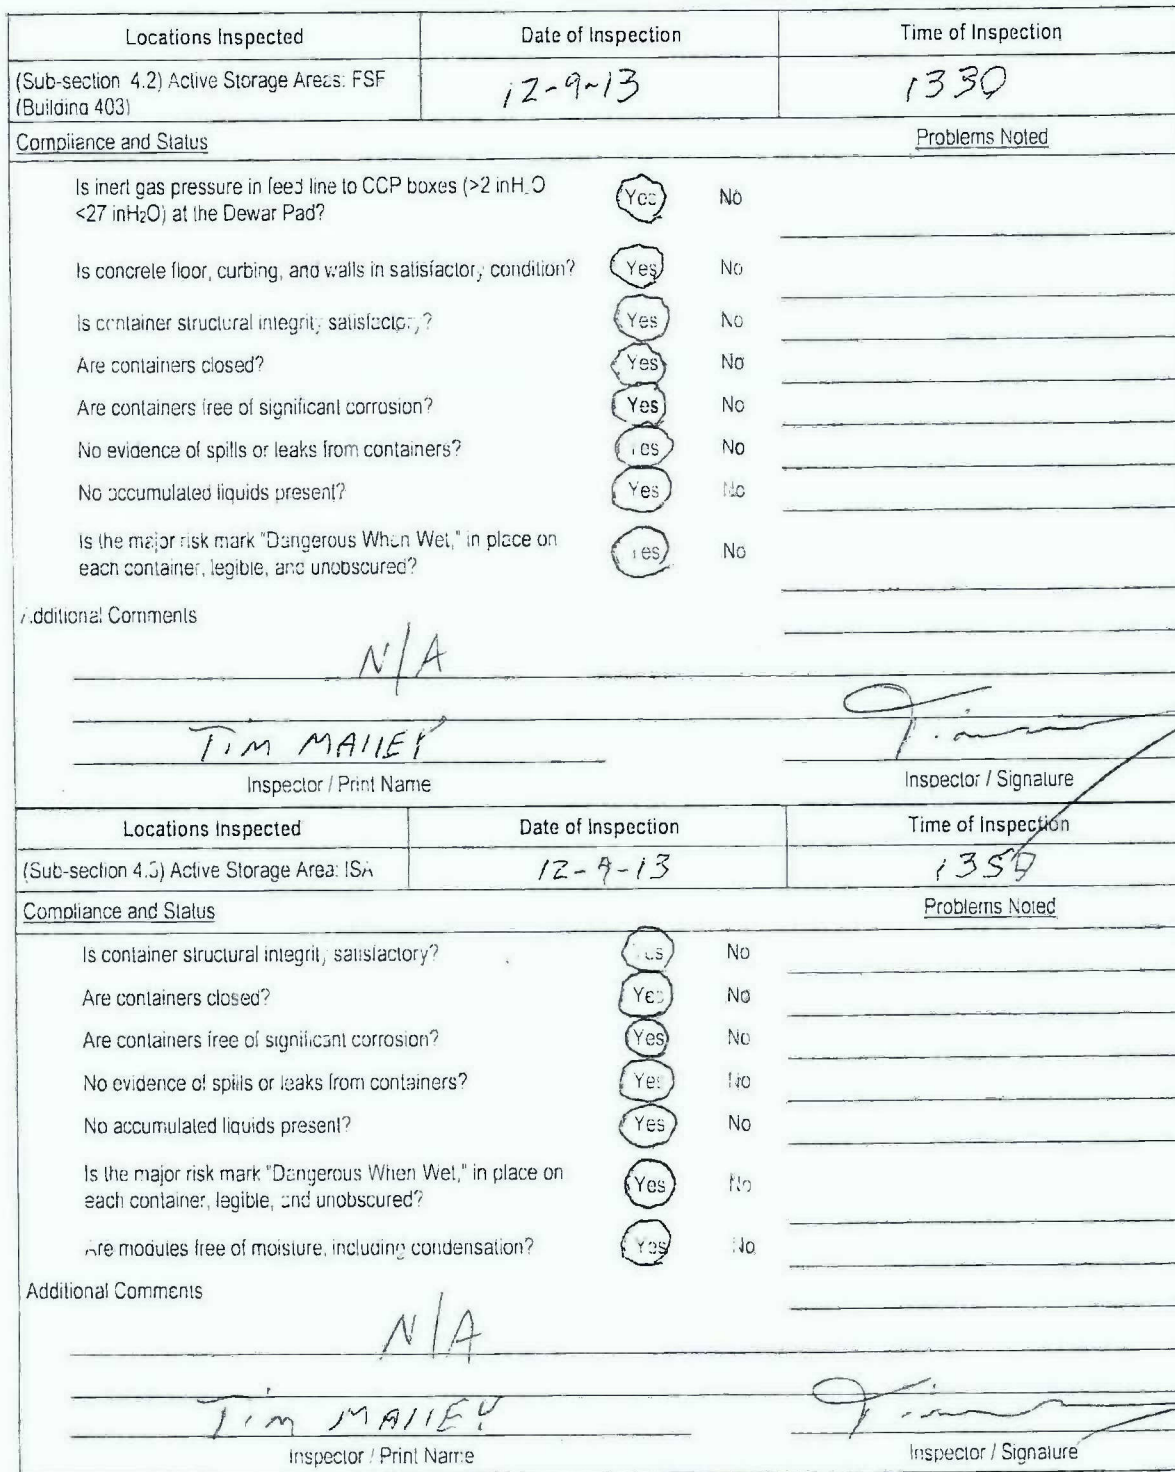 Locations Inspected Date of Inspection Time of Inspection
(Sub-section 4.2) Active Storage Areas: FSF
(Building 403) 12-9-13 1330
Compliance and Status Problems Noted
Is inert gas pressure in feed line to CCP boxes (>2 inH2O
<27 inH2O) at the Dewar Pad? Yes No
Is concrete floor, curbing, and walls in satisfactory condition? Yes No
Is container structural integrity satisfactory? Yes No
Are containers closed? Yes No
Are containers free of significant corrosion? Yes No
No evidence of spills or leaks from containers? Yes No
No accumulated liquids present? Yes No
Is the major risk mark "Dangerous When Wet," in place on
each container, legible, and unobscured? Yes No
Additional Comments
N/A
Tim MAllEY
Inspector / Print Name Inspector / Signature
Locations Inspected Date of Inspection Time of Inspection
(Sub-section 4.3) Active Storage Area: ISA 12-9-13 1350
Compliance and Status Problems Noted
Is container structural integrity satisfactory? Yes No
Are containers closed? Yes No
Are containers free of significant corrosion? Yes No
No evidence of spills or leaks from containers? Yes No
No accumulated liquids present? Yes No
Is the major risk mark "Dangerous When Wet," in place on
each container, legible, and unobscured? Yes No
Are modules free of moisture, including condensation? Yes No
Additional Comments
N/A
Tim MAllEY
Inspector / Print Name Inspector / Signature